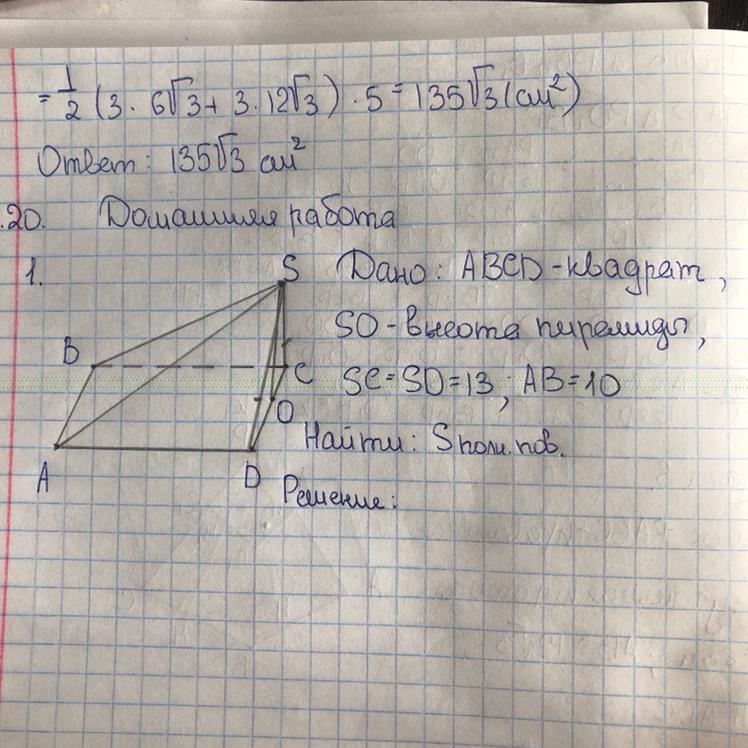 = 1/2 (3 · 6√3 + 3 · 12√3) · 5 = 135√3 (см²)
Ответ: 135√3 см²
.20. Домашняя работа
1.
S
Дано: ABCD - квадрат,
SO - высота пирамиды,
B
C
SC = SD = 13; AB = 10
O
Найти: Sполн.пов.
A
D
Решение: